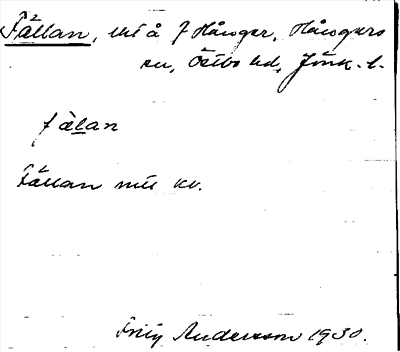 Fällan, utj å f Hånger, Hångers
sn, Östbo hd, Jönk. l.
fälan
Fällan nu kv.
Andersson 1930.